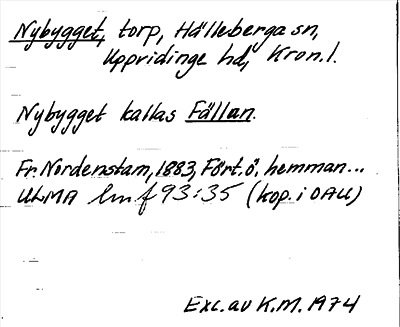 Nybygget, torp, Hälleberga sn,
Uppvidinge hd, Kron. l.
Nybygget kallas Fällan.
Fr. Nordenstam, 1883, Fört. ö. hemman...
ULMA lmf 93:35 (kop. i DAU)
Exc. av K.M. 1974